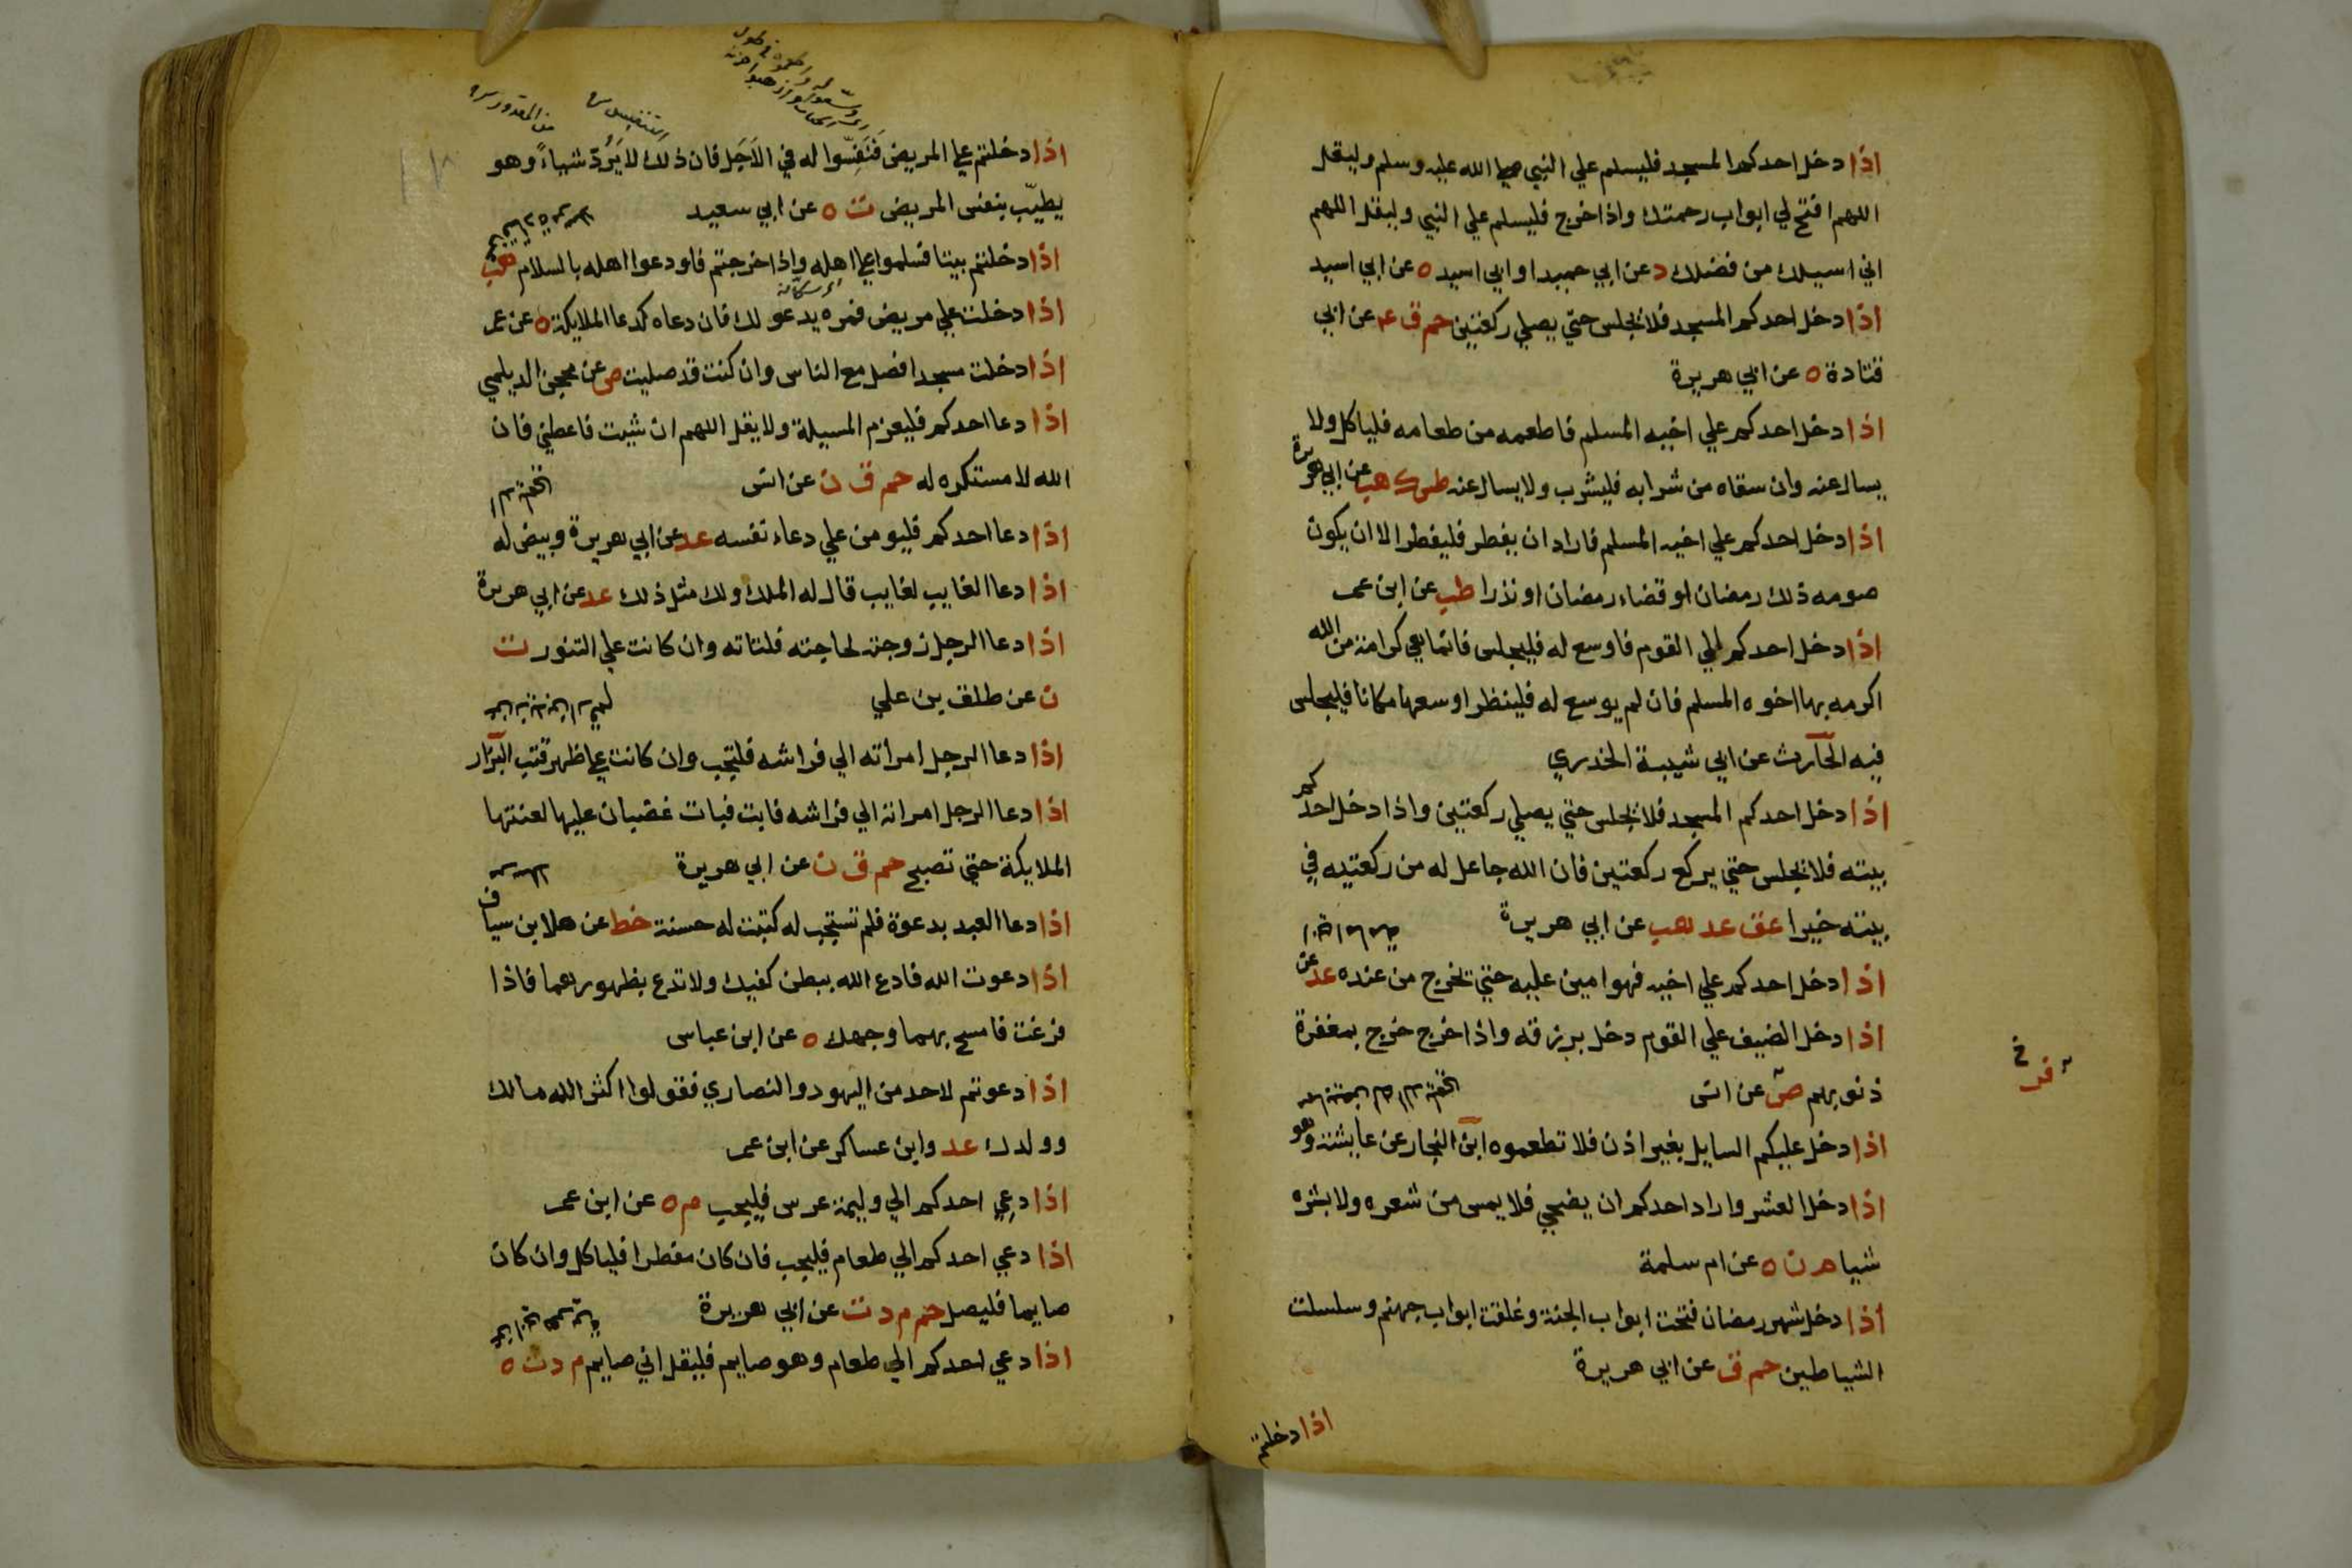 اذا دخل احدكم المسجد فليسلم علي النبي صلي الله عليه وسلم وليقل
اللهم افتح لي ابواب رحمتك واذا خرج فليسلم علي النبي وليقل اللهم
اني اسيلك من فضلك د عن ابي حميد او ابي اسيد ه عن ابي اسيد
اذا دخل احدكم المسجد فلا يجلس حتي يصلي ركعتين حم ق عه عن ابي
قتادة ه عن ابي هريرة
اذا دخل احدكم علي اخيه المسلم فاطعمه من طعامه فلياكل ولا
يسال عنه وان سقاه من شرابه فليشرب ولا يسال عنه طس ك هب عن ابي هريرة
اذا دخل احدكم علي اخيه المسلم فاراد ان يفطر فليفطر الا ان يكون
صومه ذلك رمضان او قضاء رمضان او نذرا طب عن ابن عمر
اذا دخل احدكم الي القوم فاوسع له فليجلس فانما هي كرامة من الله
اكرمه بها اخوه المسلم فان لم يوسع له فلينظر اوسعها مكانا فليجلس
فيه الحارث عن ابي شيبة الخدري
اذا دخل احدكم المسجد فلا يجلس حتي يصلي ركعتين واذا دخل احدكم
بيته فلا يجلس حتي يركع ركعتين فان الله جاعل له من ركعتيه في
بيته خيرا عق عد هب عن ابي هريرة
اذا دخل احدكم علي اخيه فهو امين عليه حتي تخرج من عنده عد عن
اذا دخل الضيف علي القوم دخل برزقه واذا خرج خرج بمغفرة
ذنوبهم ص عن انس
اذا دخل عليكم السايل بغير اذن فلا تطعموه ابن النجار عن عايشة وهو
اذا دخل العشر واراد احدكم ان يضحي فلا يمس من شعره ولا بشره
شيا م ن ه عن ام سلمة
اذا دخل شهر رمضان فتحت ابواب الجنة وغلقت ابواب جهنم وسلسلت
الشياطين حم ق عن ابي هريرة
اذا دخلتم
فر
التنفيس
اذا دخلتم علي المريض فَنَفِّسوا له في الاَجَل فان ذلك لا يَرُدّ شياءً وهو
يطيّب بنفس المريض ت ه عن ابي سعيد
اذا دخلتم بيتا فسلموا علي اهله واذا خرجتم فاودعوا اهله بالسلام هب
اذا دخلت علي مريض فمره يدعو لك فان دعاه كدعا الملايكة ه عن عمر
اذا دخلت مسجدا فصل مع الناس وان كنت قد صليت ص عن محجن الديلمي
اذا دعا احدكم فليعزم المسيلة ولا يقل اللهم ان شيت فاعطني فان
الله لا مستكره له حم ق ن عن انس
اذا دعا احدكم فليومن علي دعاء نفسه عد عن ابي هريرة وبيض له
اذا دعا الغايب لغايب قال له الملك ولك مثل ذلك عد عن ابي هريرة
اذا دعا الرجل زوجته لحاجته فلتاته وان كانت علي التنور ت
ن عن طلق بن علي
اذا دعا الرجل امراته الي فراشه فلتجب وان كانت علي ظهر قتب البزار
اذا دعا الرجل امراته الي فراشه فابت فبات غضبان عليها لعنتها
الملايكة حتي تصبح حم ق ن عن ابي هريرة
اذا دعا العبد بدعوة فلم تستجب له كتبت له حسنة خط عن هلا بن سياف
اذا دعوت الله فادع الله ببطن كفيك ولا تدع بظهورهما فاذا
فرغت فامسح بهما وجهك ه عن ابن عباس
اذا دعوتم لاحد من اليهود والنصاري فقولوا اكثر الله مالك
وولدك عد وابن عساكر عن ابن عمر
اذا دعي احدكم الي وليمة عرس فليجب م ه عن ابن عمر
اذا دعي احدكم الي طعام فليجب فان كان مفطرا فلياكل وان كان
صايما فليصل حم م د ت عن ابي هريرة
اذا دعي احدكم الي طعام وهو صايم فليقل اني صايم م د ت ه